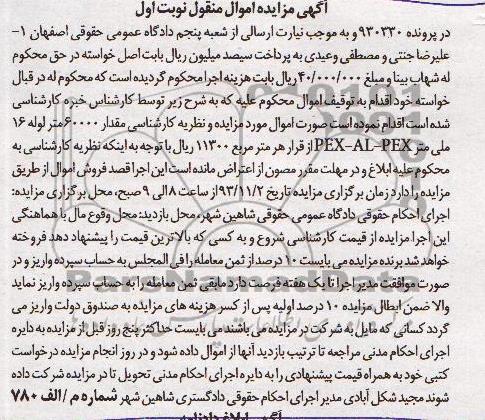 آگهی مزایده اموال منقول نوبت اول
در پرونده ۹۳۰۳۳۰ و به موجب نیارت ارسالی از شعبه پنجم دادگاه عمومی حقوقی اصفهان ۱-
علیرضا جنتی و مصطفی وعیدی به پرداخت سیصد میلیون ریال بابت اصل خواسته در حق محکوم
له شهاب بینا و مبلغ ۴۰/۰۰۰/۰۰۰ ریال بابت هزینه اجرا محکوم گردیده است که محکوم له در قبال
خواسته خود اقدام به توقیف اموال محکوم علیه که به شرح زیر توسط کارشناس خبره کارشناسی
شده است اقدام نموده است صورت اموال مورد مزایده و نظریه کارشناسی مقدار ۶۰۰۰۰ متر لوله ۱۶
ملی متر PEX-AL-PEX از قرار هر متر مربع ۱۱۳۰۰ ریال با توجه به اینکه نظریه کارشناسی به
محکوم علیه ابلاغ و در مهلت مقرر مصون از اعتراض مانده است این اجرا قصد فروش اموال از طریق
مزایده را دارد زمان برگزاری مزایده تاریخ ۹۳/۱۱/۲ از ساعت ۸ الی ۹ صبح، محل برگزاری مزایده:
اجرای احکام حقوقی دادگاه عمومی حقوقی شاهین شهر، محل بازدید: محل وقوع مال با هماهنگی
این اجرا مزایده از قیمت کارشناسی شروع و به کسی که بالاترین قیمت را پیشنهاد دهد فروخته
خواهد شد برنده مزایده می بایست ۱۰ درصد از ثمن معامله را فی المجلس به حساب سپرده واریز و در
صورت موافقت مدیر اجرا تا یک هفته فرصت دارد مابقی ثمن معامله را به حساب سپرده واریز نماید
والا ضمن ابطال مزایده ۱۰ درصد اولیه پس از کسر هزینه های مزایده به صندوق دولت واریز می
گردد کسانی که مایل به شرکت در مزایده می باشند می بایست حداکثر پنج روز قبل از مزایده به دایره
اجرای احکام مدنی مراجعه تا ترتیب بازدید آنها از اموال داده شود و در روز انجام مزایده درخواست
کتبی خود به همراه قیمت پیشنهادی را به دایره اجرای احکام مدنی تحویل تا در مزایده شرکت داده
شوند مجید شکل آبادی مدیر اجرای احکام حقوقی دادگستری شاهین شهر شماره م/الف ۷۸۰